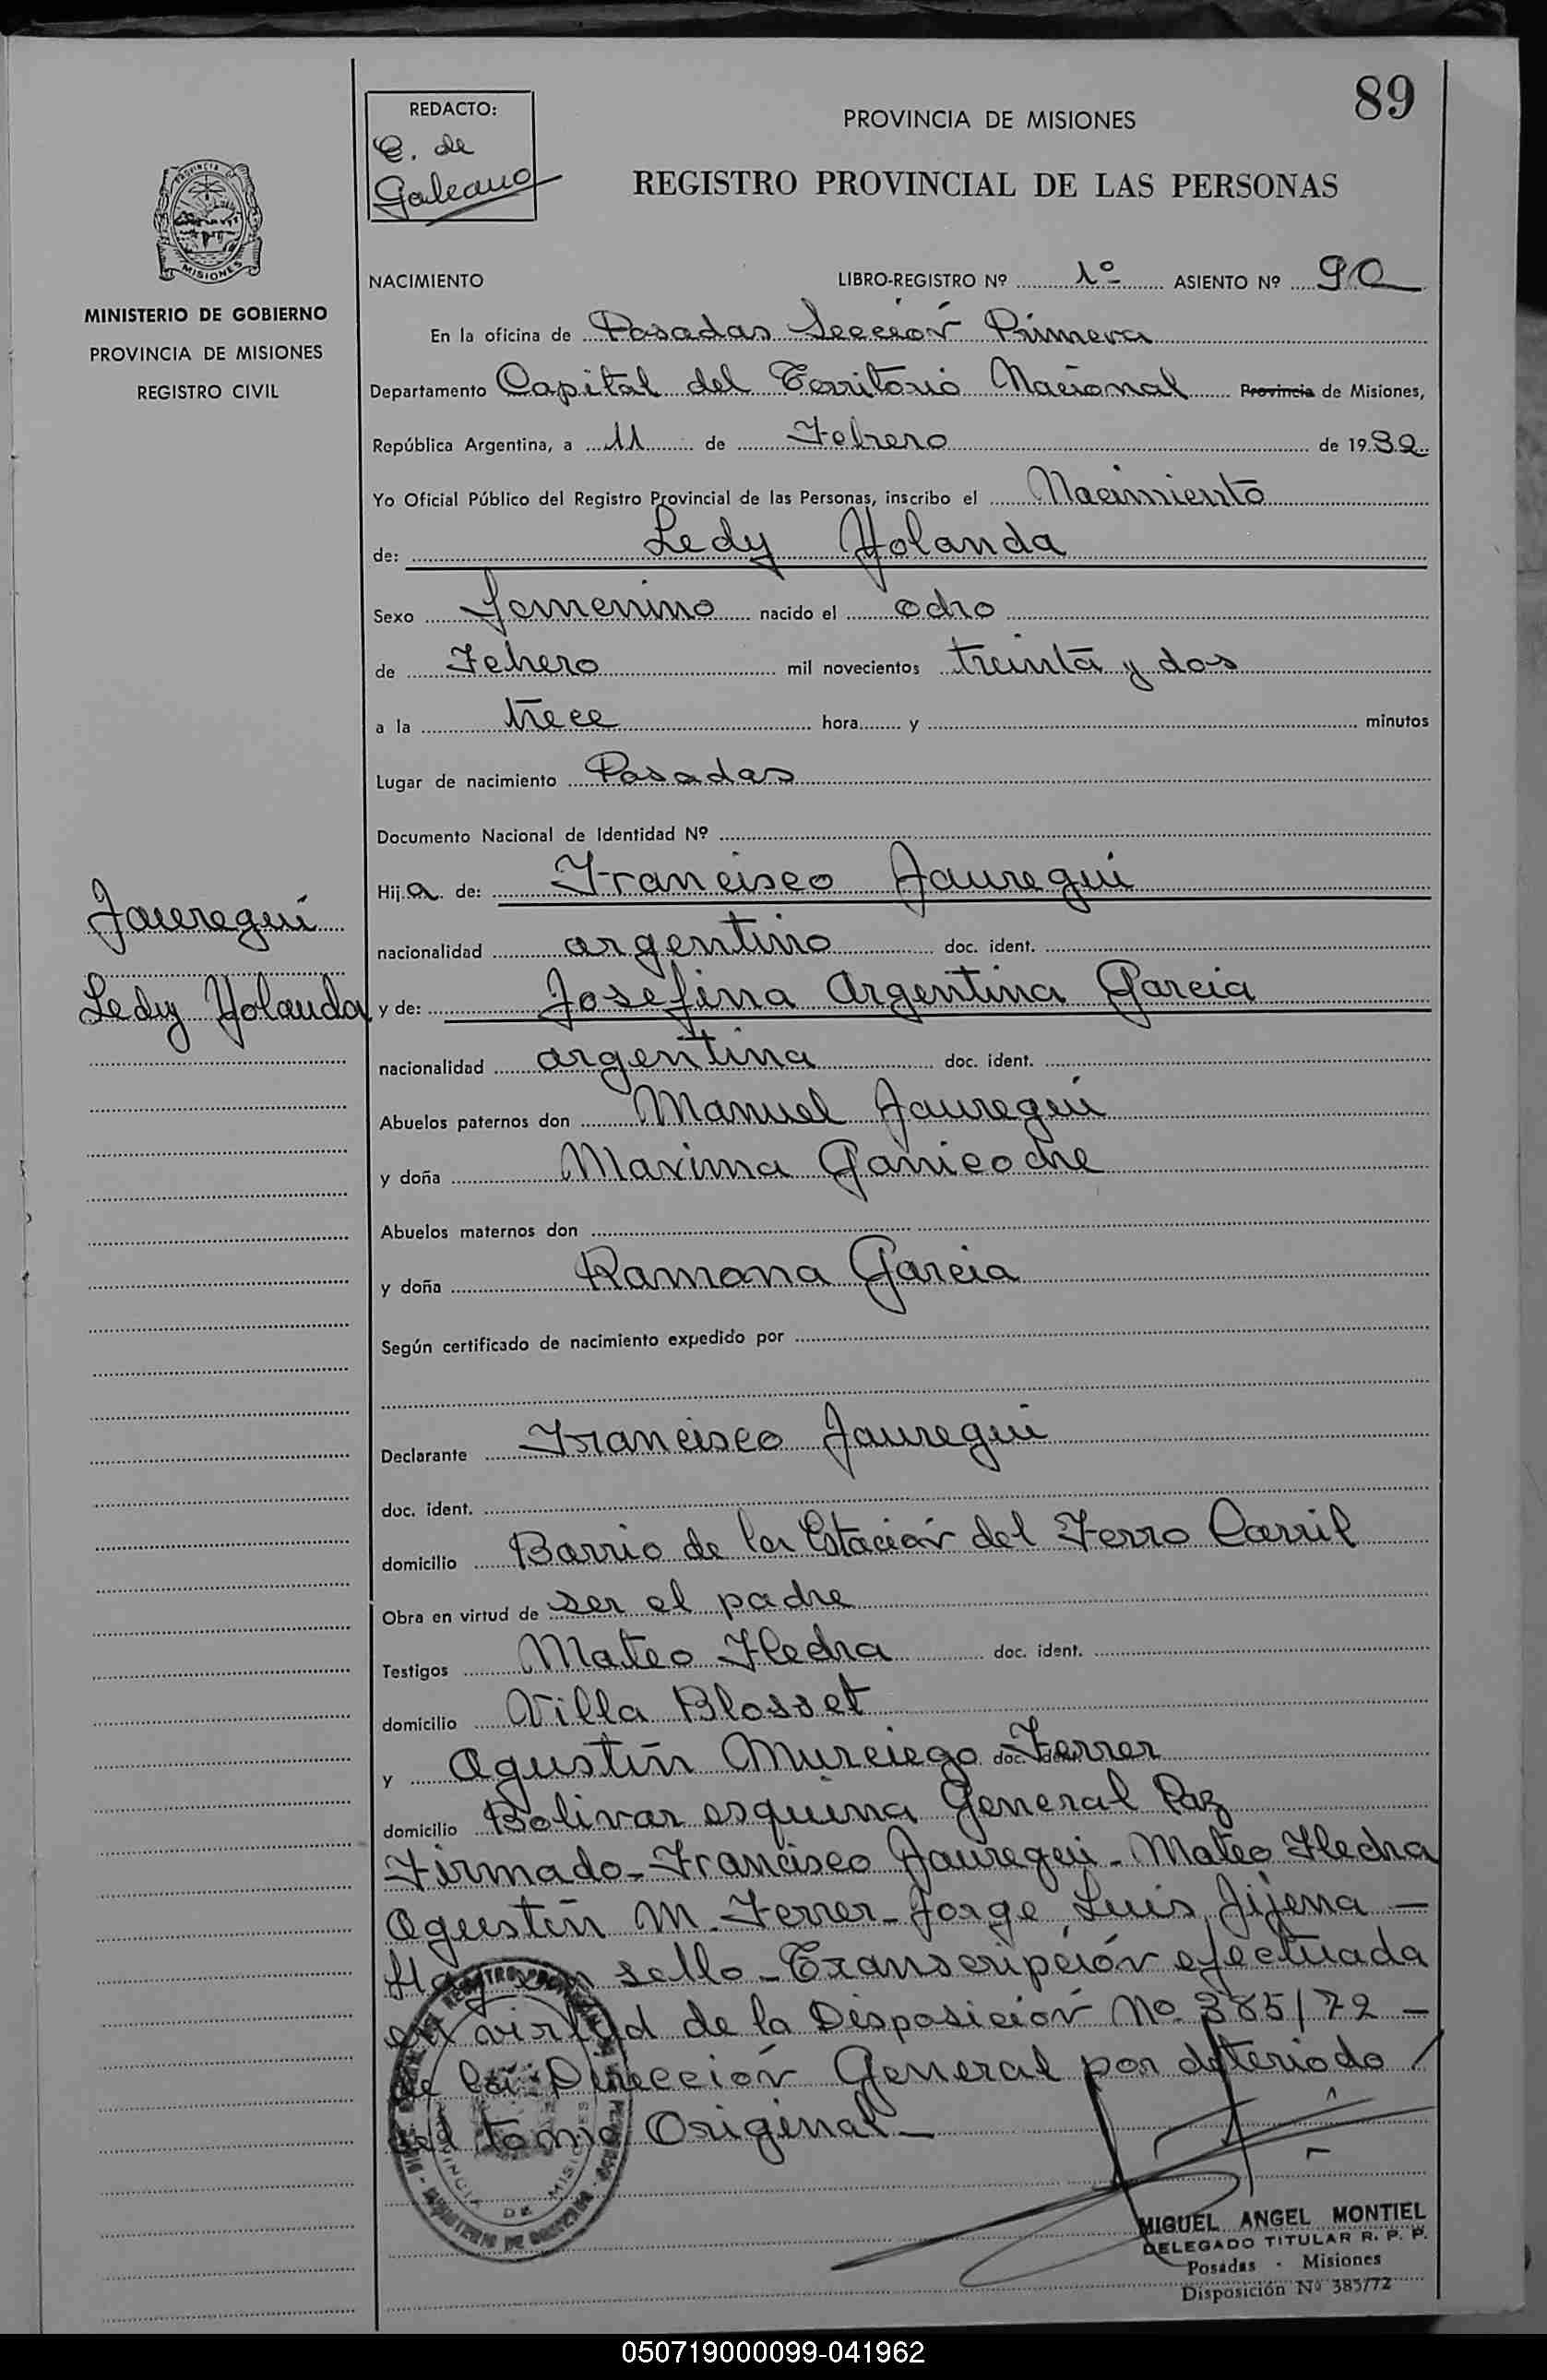 89
REDACTO:
E. de
Galeano
PROVINCIA DE MISIONES
REGISTRO PROVINCIAL DE LAS PERSONAS
MISIONES
MINISTERIO DE GOBIERNO
PROVINCIA DE MISIONES
REGISTRO CIVIL
NACIMIENTO LIBRO-REGISTRO Nº 1º ASIENTO Nº 90
En la oficina de Posadas Sección Primera
Departamento Capital del Territorio Nacional Provincia de Misiones,
República Argentina, a 11 de Febrero de 1932
Yo Oficial Público del Registro Provincial de las Personas, inscribo el Nacimiento
de: Ledy Yolanda
Sexo femenino nacido el ocho
de Febrero mil novecientos treinta y dos
a la trece hora y minutos
Lugar de nacimiento Posadas
Documento Nacional de Identidad Nº
Hija de: Francisco Jauregui
Jauregui
Ledy Yolanda
nacionalidad argentino doc. ident.
y de: Josefina Argentina Garcia
nacionalidad argentina doc. ident.
Abuelos paternos don Manuel Jauregui
y doña Maxima Ganicoche
Abuelos maternos don
y doña Ramona Garcia
Según certificado de nacimiento expedido por
Declarante Francisco Jauregui
doc. ident.
domicilio Barrio de la Estación del Ferro Carril
Obra en virtud de ser el padre
Testigos Mateo Hedra doc. ident.
domicilio Villa Blosset
y Agustín Murciego Ferrer doc.
domicilio Bolivar esquina General Paz
Firmado - Francisco Jauregui - Mateo Hedra
Agustín M. Ferrer - Jorge Luis Jijena -
Hay un sello - Transcripción efectuada
en virtud de la Disposición Nº 385/72 -
de la Dirección General por deteriodo /
del tomo Original -
MIGUEL ANGEL MONTIEL
DELEGADO TITULAR R. P. P.
Posadas - Misiones
Disposición Nº 385/72
050719000099-041962